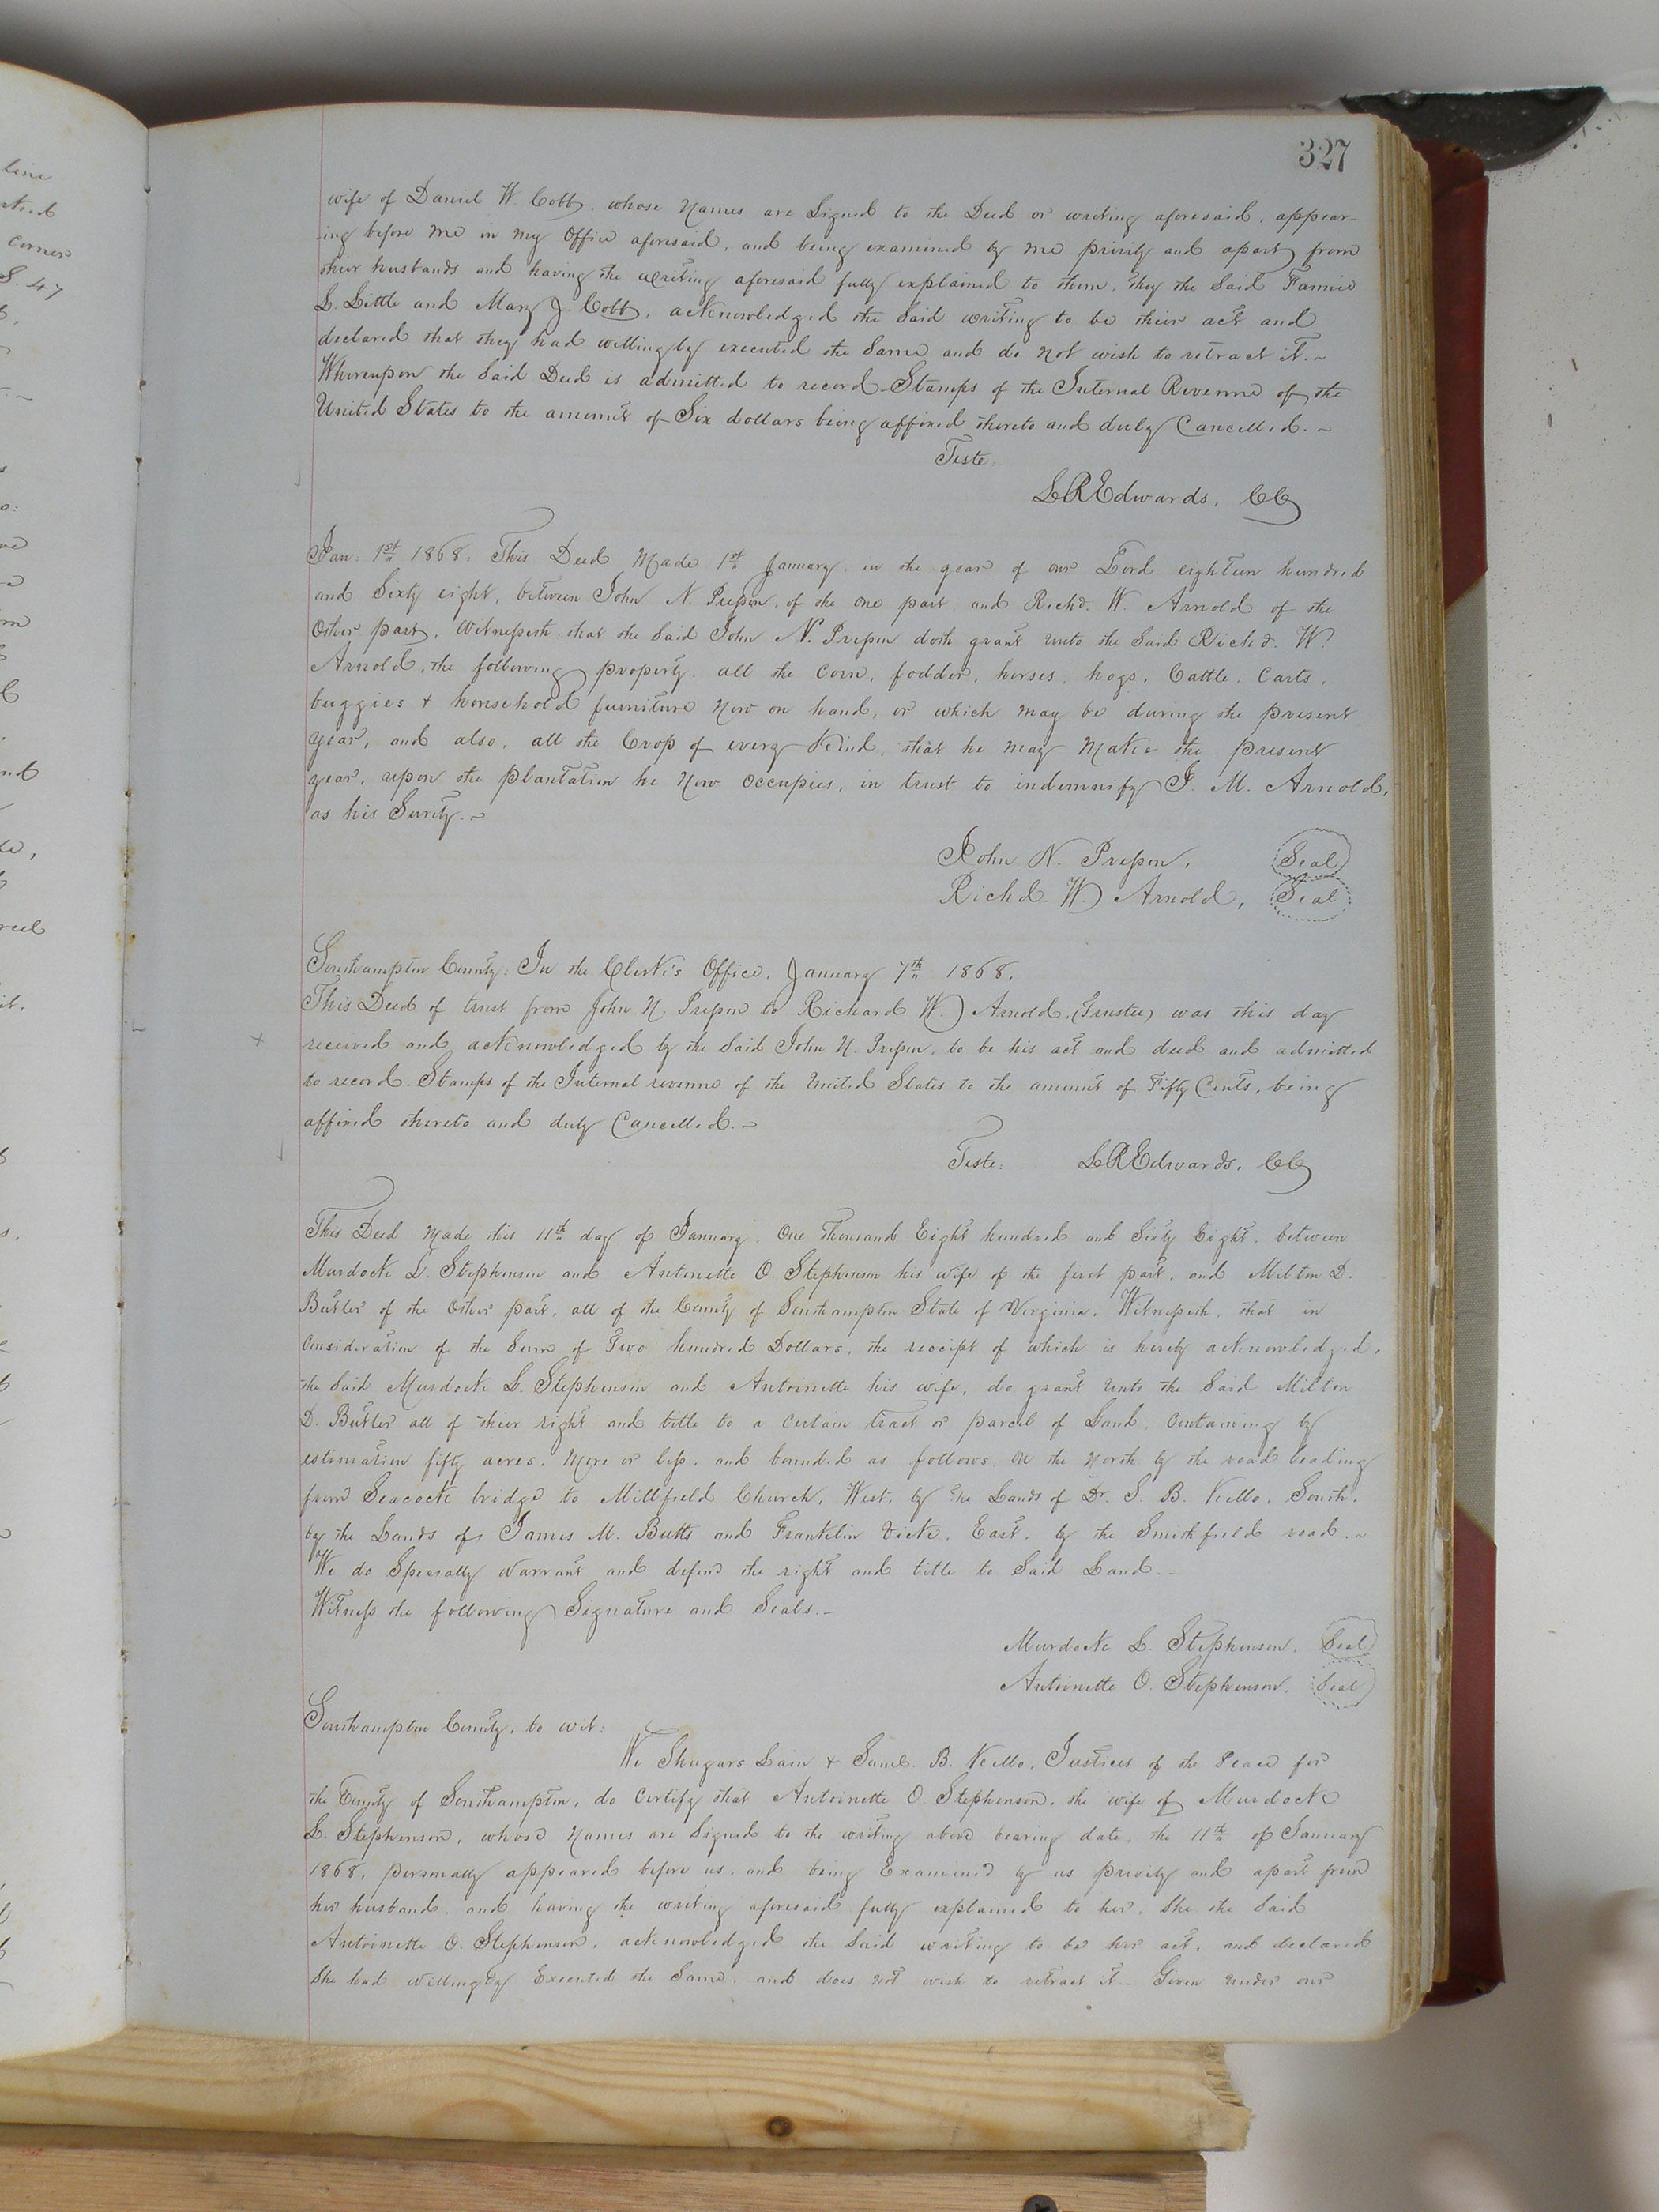 line
corner
S. 47
327
wife of Daniel W. Cobb, whose Names are Signed to the Deed or writing aforesaid, appear-
ing before me in my Office aforesaid, and being examined by me privily and apart from
their husbands and having the writing aforesaid fully explained to them, they the Said Fannie
L. Little and Mary J. Cobb, acknowledged the Said writing to be their act and
declared that they had willingly executed the Same and do not wish to retract it. ~
Whereupon the Said Deed is admitted to record. Stamps of the Internal Revenue of the
United States to the amount of Six dollars being affixed thereto and duly Cancelled. ~
Teste.
L R Edwards, CC
Jan: 1st 1868. This Deed Made 1st January, in the year of our Lord eighteen hundred
and Sixty eight, between John N. Prepon, of the one part and Richd. W. Arnold of the
Other part, Witnesseth that the Said John N. Prepon doth grant unto the Said Richd. W.
Arnold, the following property. all the Corn, fodder, horses, hogs, Cattle, Carts,
buggies & household furniture Now on hand, or which may be during the present
Year, and also, all the Crop of every Kind, that he may Make the present
year, upon the plantation he Now occupies, in trust to indemnify J. M. Arnold,
as his Surity. ~
John N. Prepon, Seal
Richd. W. Arnold, Seal
Southampton County: In the Clerk's Office, January 7th 1868.
This Deed of trust from John N. Prepon to Richard W. Arnold, (Trustee) was this day
received and acknowledged by the Said John N. Prepon, to be his act and deed and admitted
to record. Stamps of the Internal revenue of the United States to the amount of Fifty Cents, being
affixed thereto and duly Cancelled. ~
Teste: L R Edwards, CC
This Deed Made this 11th day of January, One Thousand Eight hundred and Sixty Eight, between
Murdock L. Stephenson and Antoinette O. Stephenson his wife of the first part, and Milton D.
Butler of the Other part, all of the County of Southampton State of Virginia, Witnesseth, that in
Consideration of the Sum of Two hundred Dollars, the receipt of which is hereby acknowledged,
the Said Murdock L. Stephenson and Antoinette his wife, do grant unto the Said Milton
D. Butler all of their right and title to a certain tract or parcel of Land, Containing by
estimation fifty acres, More or less, and bounded as follows, On the North by the road leading
from Seacock bridge to Millfield Church, West, by the Lands of Dr. S. B. Kello, South,
by the Lands of James M. Butts and Franklin Vick, East, by the Smithfield road. ~
We do Specially warrant and defend the right and title to Said Land. -
Witness the following Signature and Seals. -
Murdock L. Stephenson, Seal
Antoinette O. Stephenson. Seal
Southampton County, to wit:
We Shugars Lain & Saml. B. Kello, Justices of the Peace for
the County of Southampton, do Certify that Antoinette O. Stephenson, the wife of Murdock
L. Stephenson, whose Names are Signed to the writing above bearing date, the 11th of January
1868, personally appeared before us, and being Examined by us privily and apart from
her husband and having the writing aforesaid fully explained to her, She the Said
Antoinette O. Stephenson, acknowledged the Said writing to be her act, and declared
She had willingly Executed the Same, and does not wish to retract it. - Given under our